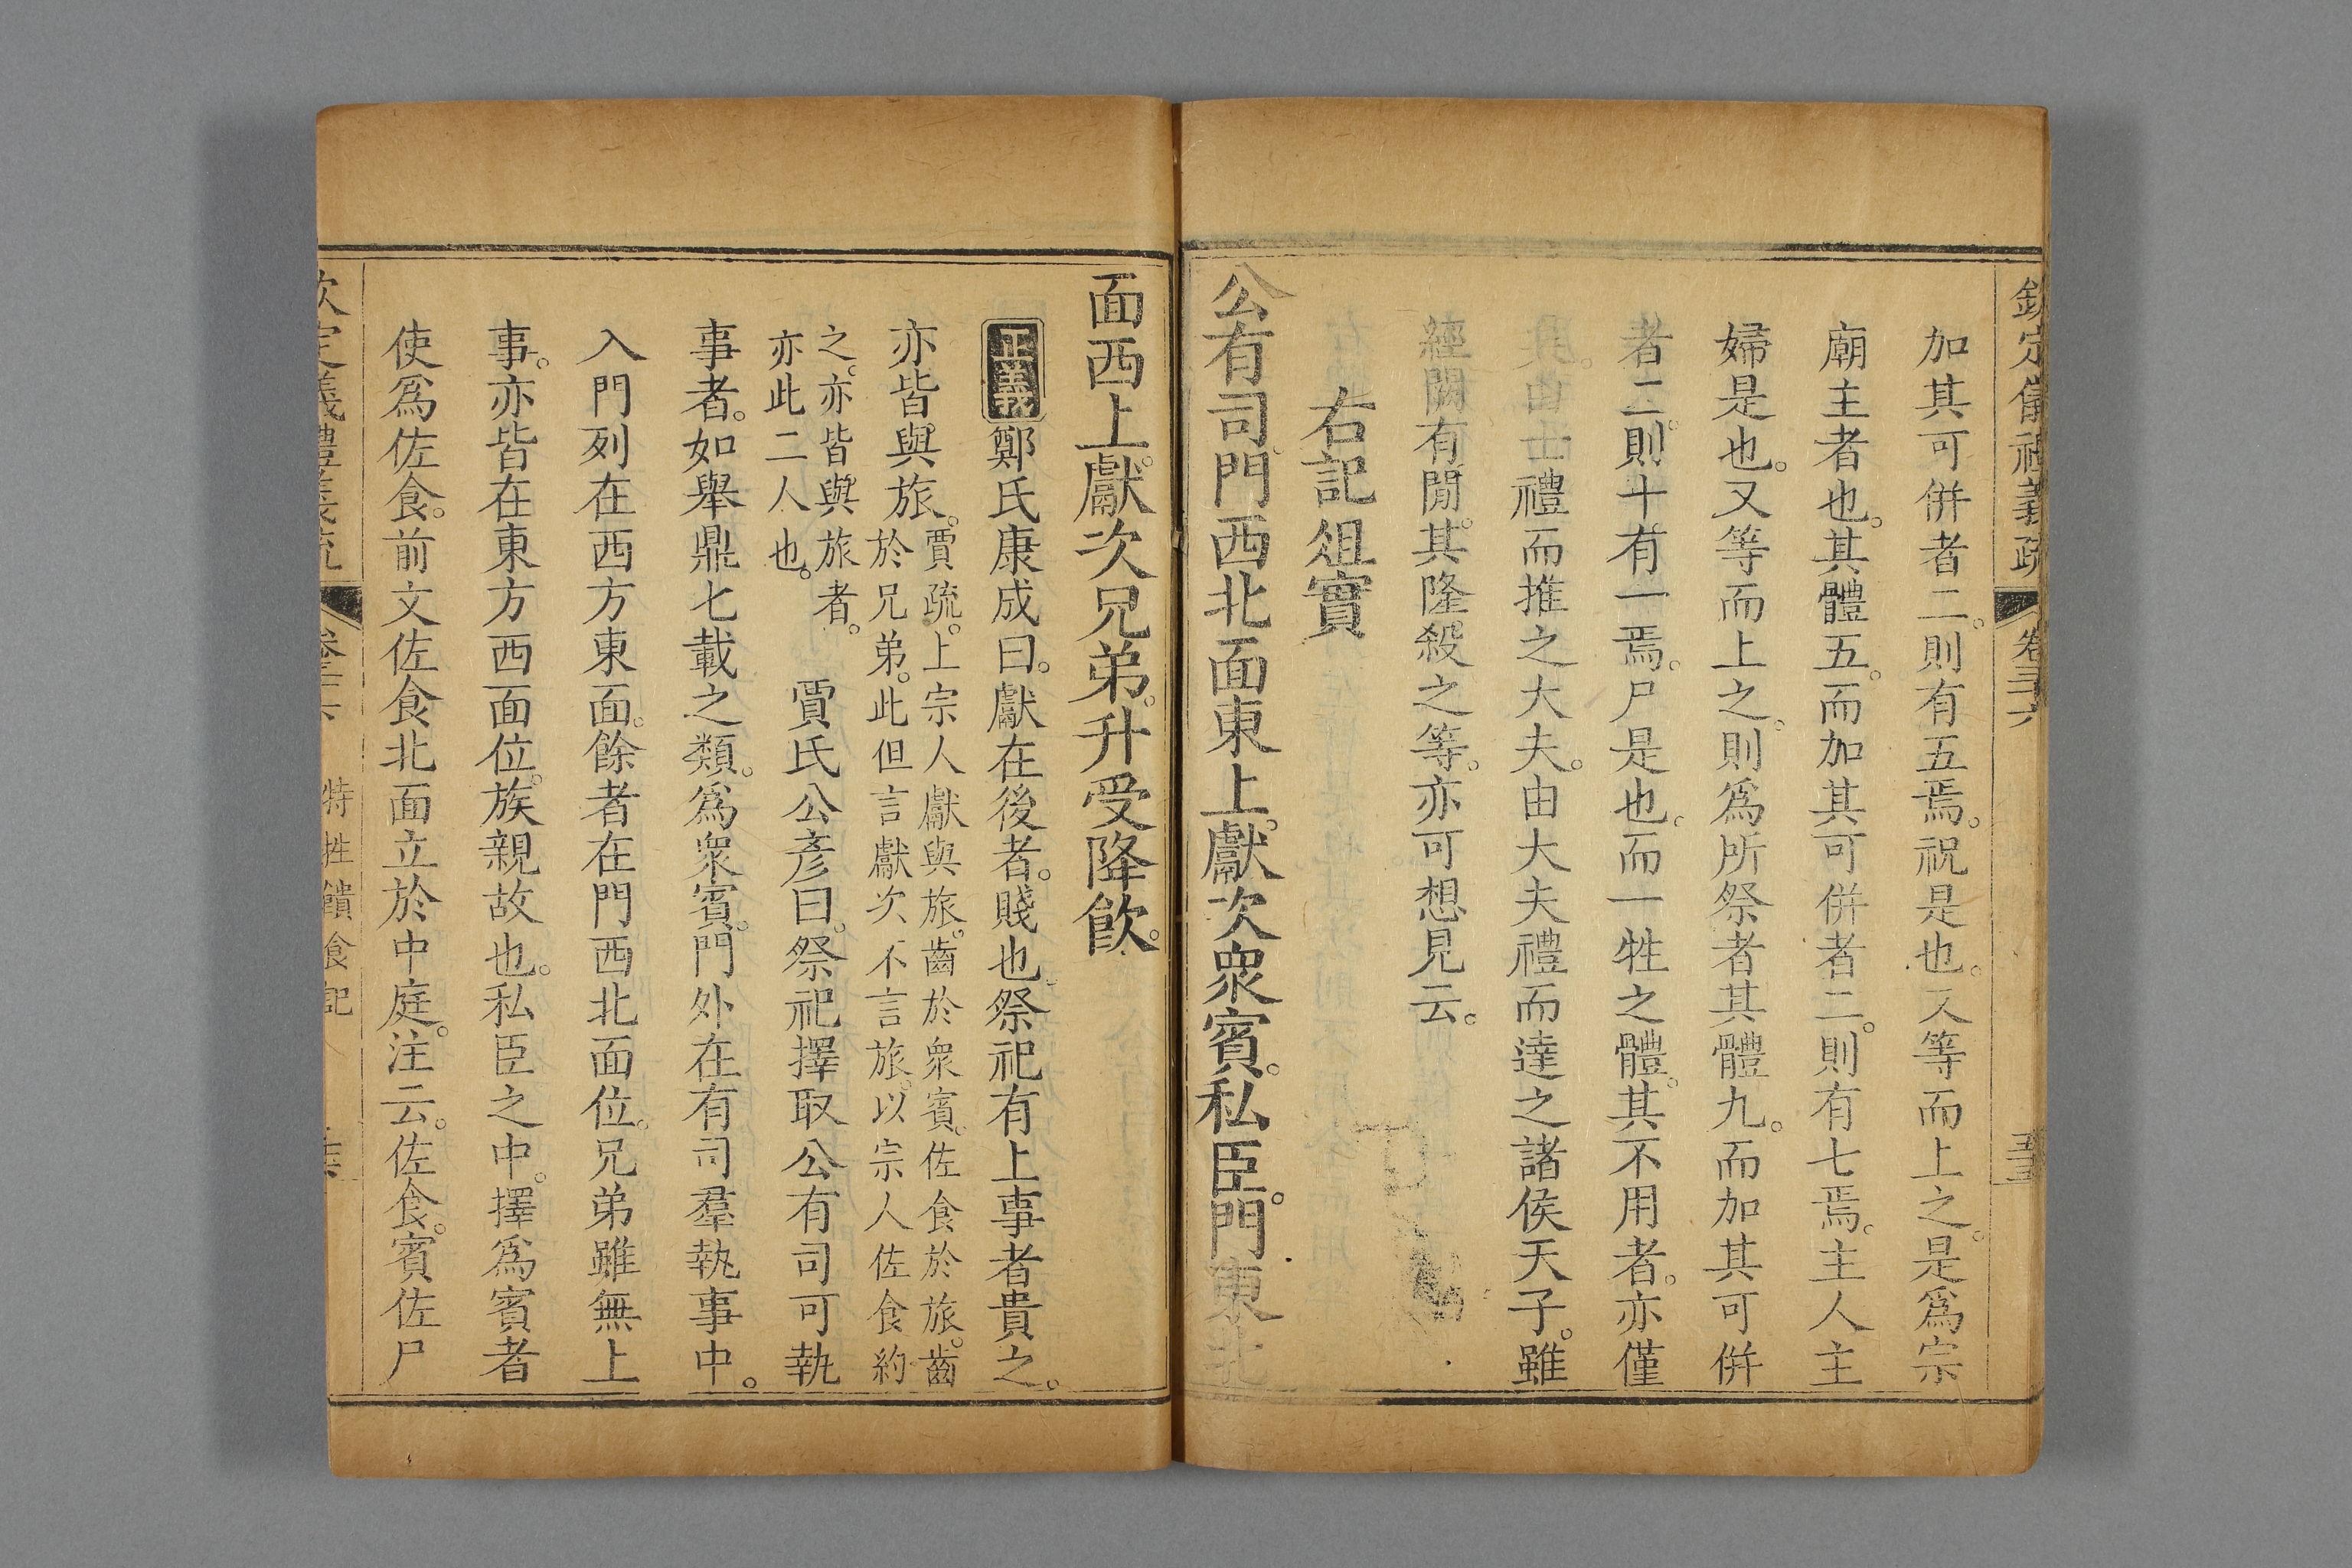 欽定儀禮義疏 卷三十六
加其可併者二。則有五焉。祝是也。又等而上之。是爲宗
廟主者也。其體五。而加其可併者二。則有七焉。主人主
婦是也。又等而上之。則爲所祭者其體九。而加其可併
者二。則十有一焉。尸是也。而一牲之體。其不用者。亦僅
具。由士禮而推之大夫。由大夫禮而達之諸侯天子。雖
經闕有閒。其隆殺之等。亦可想見云。
右記俎實
公有司門西北面東上。獻次衆賓。私臣。門東北
面西上。獻次兄弟。升受降飲。
正義鄭氏康成曰。獻在後者。賤也。祭祀有上事者貴之。
亦皆與旅。賈疏。上宗人獻與旅。齒於衆賓。佐食於旅。齒
於兄弟。此但言獻次不言旅。以宗人佐食約
之。亦皆與旅者。
亦此二人也。
賈氏公彥曰。祭祀擇取公有司可執
事者。如舉鼎匕載之類。爲衆賓。門外在有司羣執事中。
入門列在西方東面。餘者在門西北面位。兄弟雖無上
事。亦皆在東方西面位。族親故也。私臣之中。擇爲賓者
使爲佐食。前文佐食北面立於中庭。注云。佐食。賓佐尸
欽定義禮義疏 卷三十六 特牲饋食記